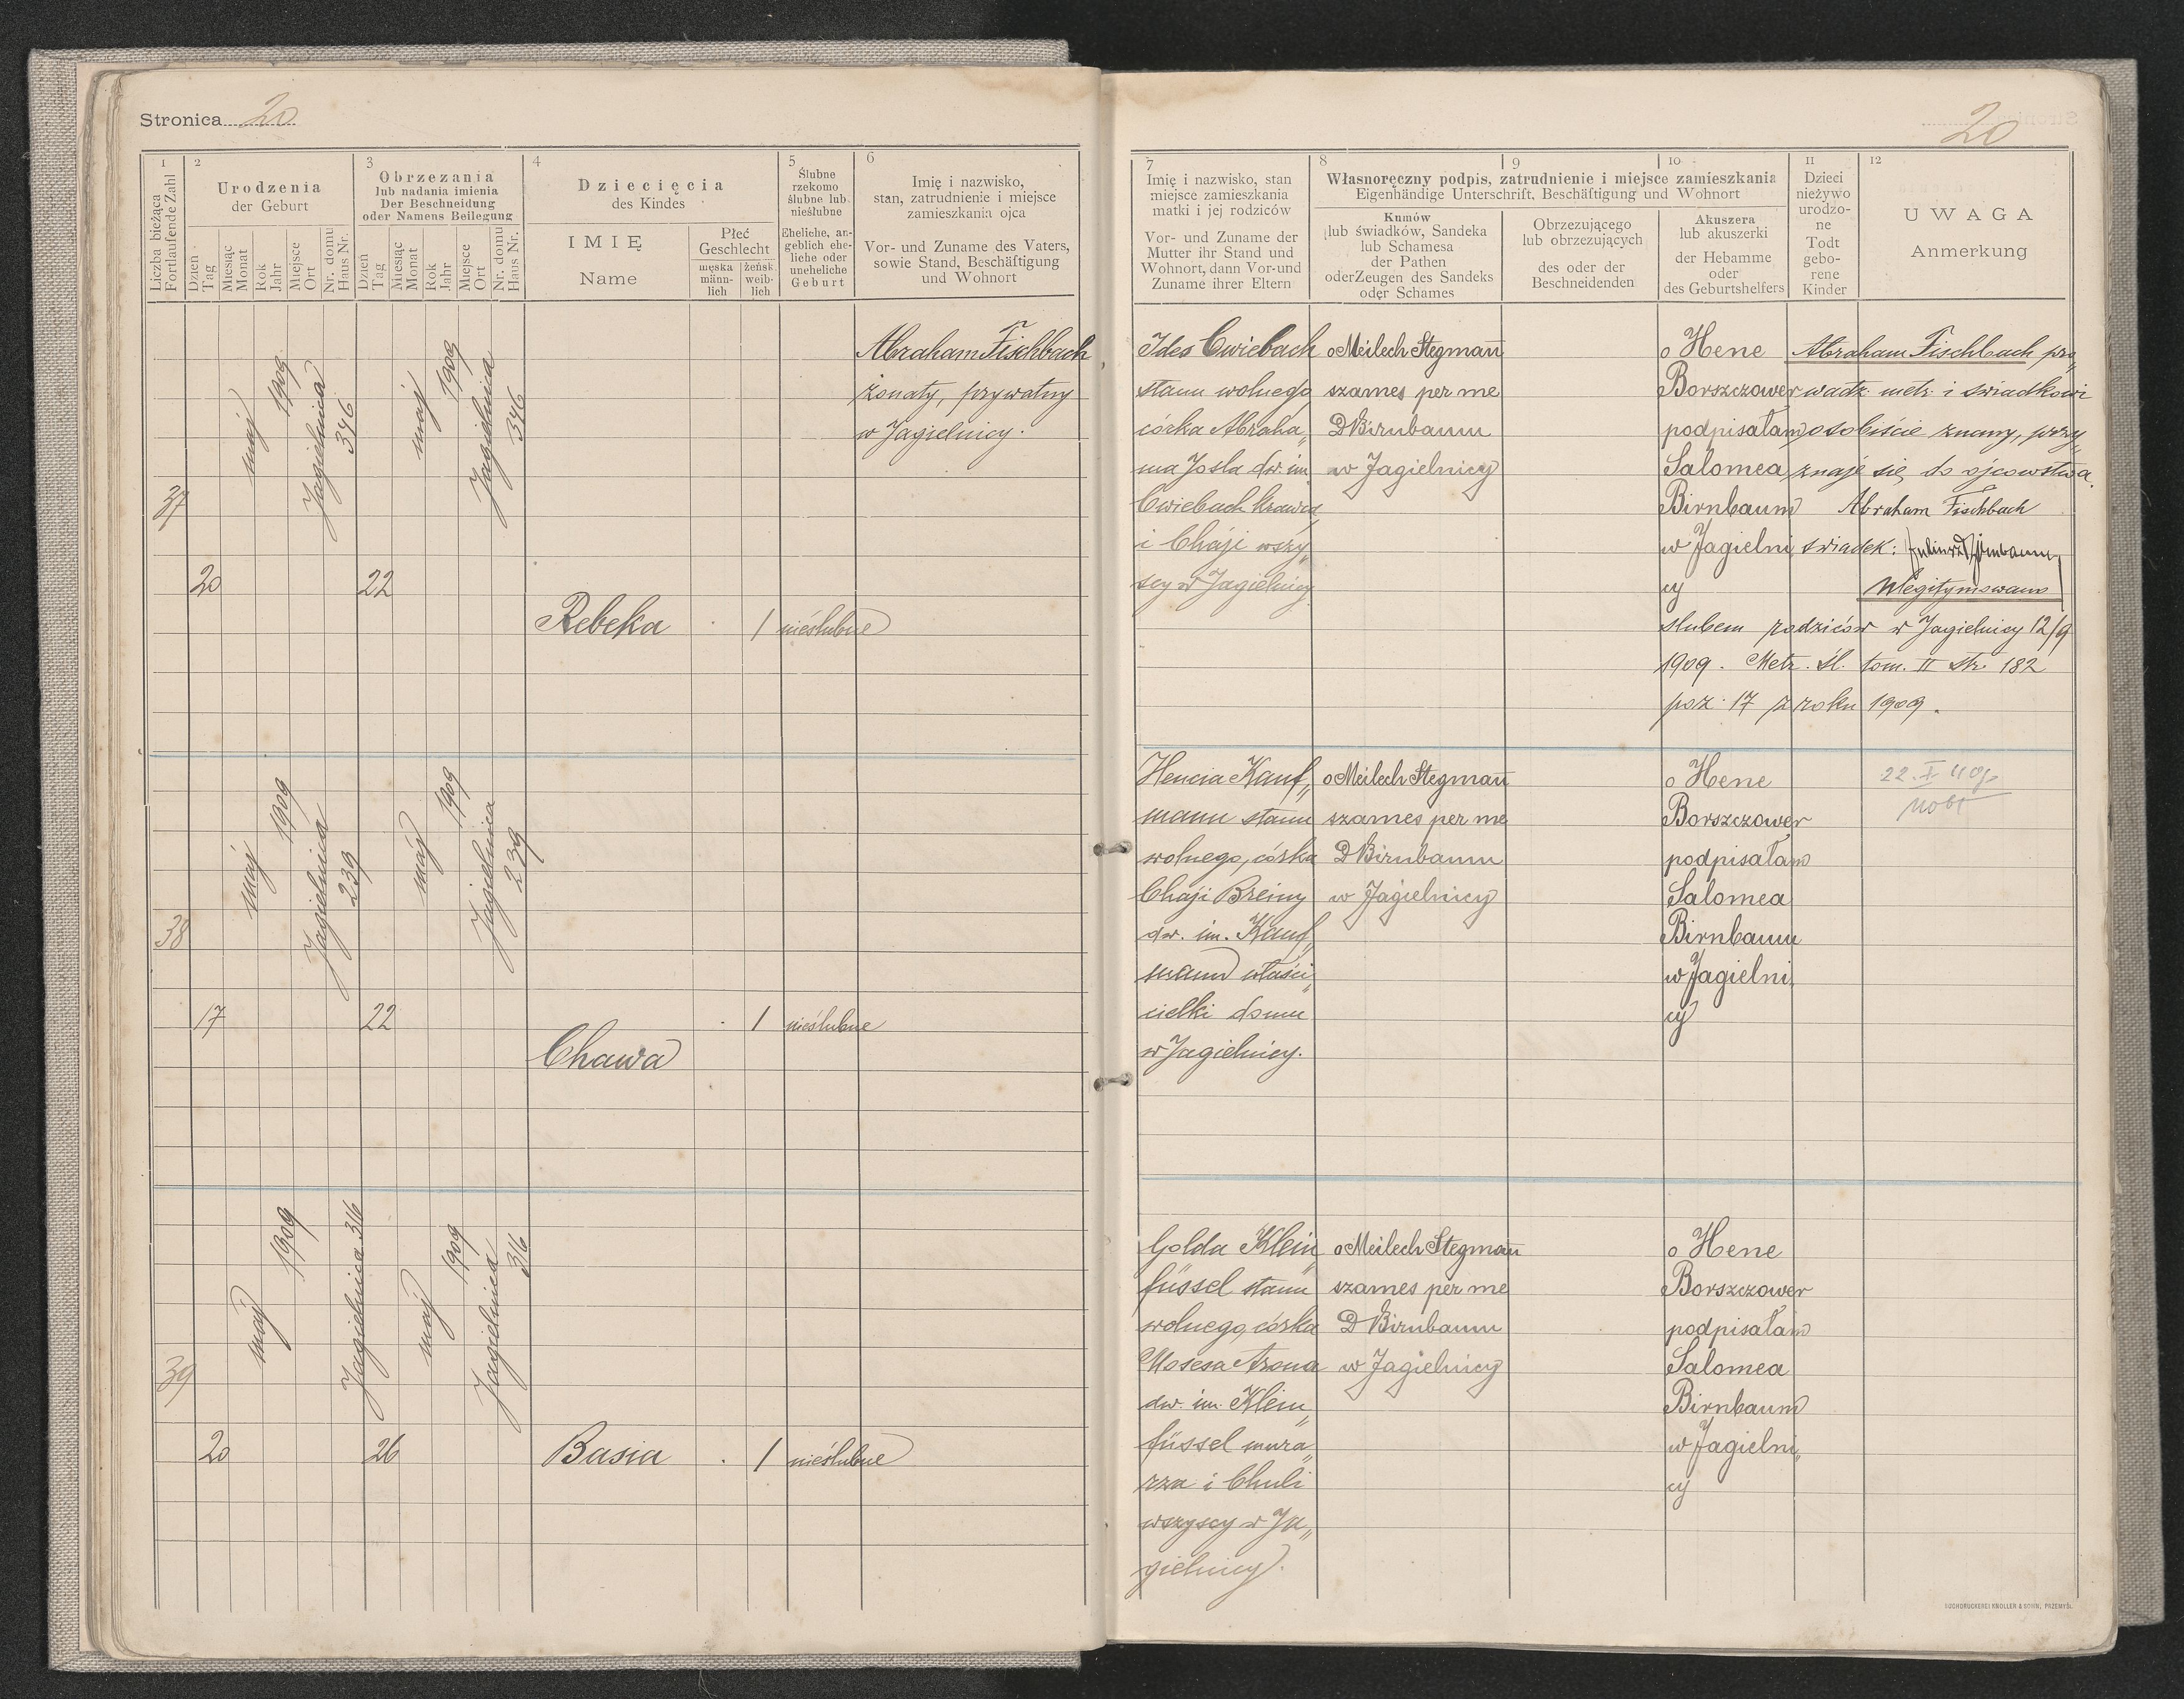 Stronica 20
1
Liczba bieżąca
Fortlaufende Zahl
2
Urodzenia
der Geburt
Dzień
Tag
Miesiąc
Monat
Rok
Jahr
Miejsce
Ort
Nr. domu
Haus Nr.
3
Obrzezania
lub nadania imienia
Der Beschneidung
oder Namens Beilegung
Dzień
Tag
Miesiąc
Monat
Rok
Jahr
Miejsce
Ort
Nr. domu
Haus Nr.
4
Dziecięcia
des Kindes
IMIĘ
Name
Płeć
Geschlecht
męska
männ-
lich
żeńsk.
weib-
lich
5
Ślubne
rzekomo
ślubne lub
nieślubne
Eheliche, an-
geblich ehe-
liche oder
uneheliche
Geburt
6
Imię i nazwisko,
stan, zatrudnienie i miejsce
zamieszkania ojca
Vor- und Zuname des Vaters,
sowie Stand, Beschäftigung
und Wohnort
37
20
maj
1909
Jagielnica
346
22
maj
1909
Jagielnica
346
Rebeka
1
nieślubne
Abraham Fischbach
żonaty, prywatny
w Jagielnicy.
38
17
maj
1909
Jagielnica
239
22
maj
1909
Jagielnica
239
Chawa
1
nieślubne
39
20
maj
1909
Jagielnica 316
26
maj
1909
Jagielnica
316
Basia
1
nieślubne
20
7
Imię i nazwisko, stan
miejsce zamieszkania
matki i jej rodziców
Vor- und Zuname der
Mutter ihr Stand und
Wohnort, dann Vor-und
Zuname ihrer Eltern
8
9
10
Własnoręczny podpis, zatrudnienie i miejsce zamieszkania
Eigenhändige Unterschrift, Beschäftigung und Wohnort
Kumów
lub świadków, Sandeka
lub Schamesa
der Pathen
oder Zeugen des Sandeks
oder Schames
Obrzezującego
lub obrzezujących
des oder der
Beschneidenden
Akuszera
lub akuszerki
der Hebamme
oder
des Geburtshelfers
11
Dzieci
nieżywo
urodzo-
ne
Todt
gebo-
rene
Kinder
12
UWAGA
Anmerkung
Ides Cwiebach
stanu wolnego
córka Abraha„
ma Josla dw. im.
Cwiebach krawca
i Chaji wszy„
scy w Jagielnicy
o Meilech Stegmann
szames per me
D Birnbaum
w Jagielnicy
o Hene
Borszczower
podpisałam
Salomea
Birnbaum
w Jagielni
cy
Abraham Fischbach pro„
wadz. metr. i świadkowi
osobiście znany, przy„
znaje się do ojcowstwa.
Abraham Fischbach
świadek: Birnbaum
Ulegitymowano
ślubem rodziców w Jagielnicy 12/9
1909. Metr. śl. tom. II str. 182
poz. 17 z roku 1909.
Hencia Kauf„
mann stanu
wolnego, córka
Chaji Breiny
dw. im. Kauf„
mann właści„
cielki domu
w Jagielnicy.
o Meilech Stegmann
szames per me
D Birnbaum
w Jagielnicy
o Hene
Borszczower
podpisałam
Salomea
Birnbaum
w Jagielni„
cy
Golda Klein„
füssel stanu
wolnego, córka
Mosesa Arona
dw. im. Klein„
füssel mura„
rza i Chuli
wszyscy w Ja„
gielnicy.
o Meilech Stegmann
szames per me
D Birnbaum
w Jagielnicy
o Hene
Borszczower
podpisałam
Salomea
Birnbaum
w Jagielni„
cy
BUCHDRUCKEREI KNOLLER & SOHN, PRZEMYŚL